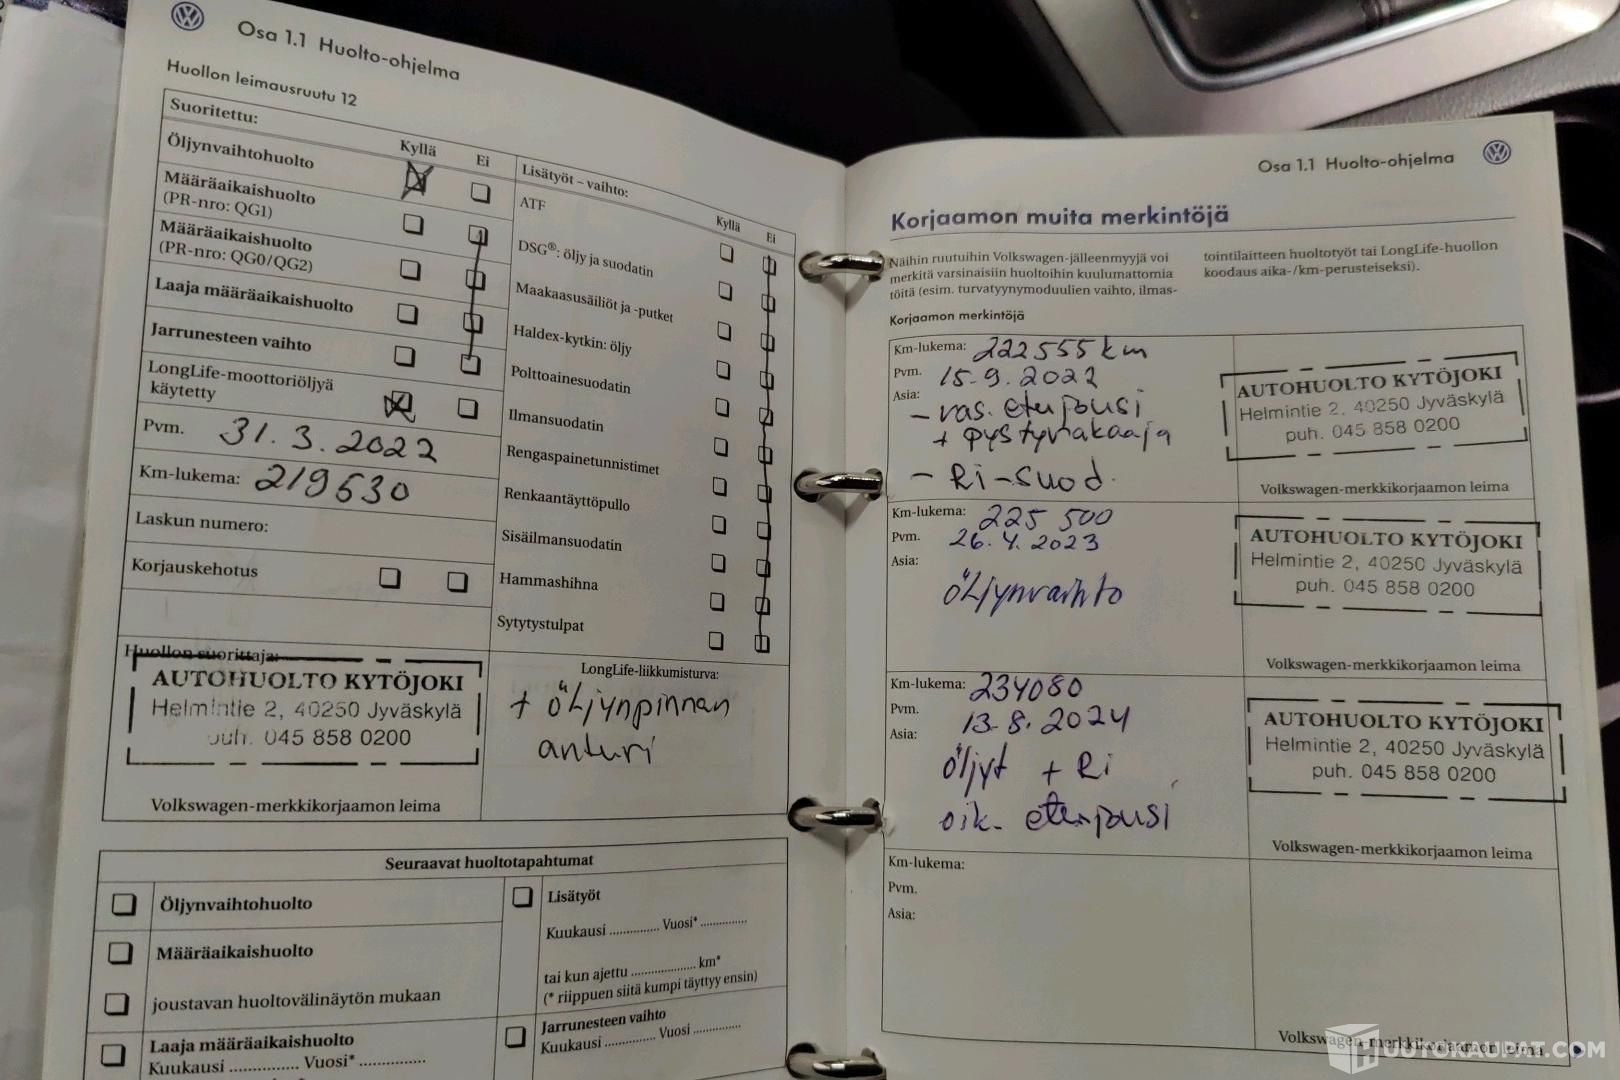 Osa 1.1 Huolto-ohjelma
Huollon leimausruutu 12
Suoritettu:
Kyllä Ei
Öljynvaihtohuolto
Määräaikaishuolto
(PR-nro: QG1)
Määräaikaishuolto
(PR-nro: QG0/QG2)
Laaja määräaikaishuolto
Jarrunesteen vaihto
LongLife-moottoriöljyä
käytetty
Pvm. 31.3.2022
Km-lukema: 219530
Laskun numero:
Korjauskehotus
Huollon suorittaja:
AUTOHUOLTO KYTÖJOKI
Helmintie 2, 40250 Jyväskylä
puh. 045 858 0200
Volkswagen-merkkikorjaamon leima
Lisätyöt – vaihto:
Kyllä Ei
ATF
DSG®: öljy ja suodatin
Maakaasusäiliöt ja -putket
Haldex-kytkin: öljy
Polttoainesuodatin
Ilmansuodatin
Rengaspainetunnistimet
Renkaantäyttöpullo
Sisäilmansuodatin
Hammashihna
Sytytystulpat
LongLife-liikkumisturva:
+ öljynpinnan
anturi
Seuraavat huoltotapahtumat
Öljynvaihtohuolto
Määräaikaishuolto
joustavan huoltovälinäytön mukaan
Laaja määräaikaishuolto
Kuukausi ............... Vuosi* ...............
Lisätyöt
Kuukausi ............... Vuosi* ...............
tai kun ajettu .................... km*
(* riippuen siitä kumpi täyttyy ensin)
Jarrunesteen vaihto
Kuukausi ............... Vuosi ...............
Osa 1.1 Huolto-ohjelma
Korjaamon muita merkintöjä
Näihin ruutuihin Volkswagen-jälleenmyyjä voi
merkitä varsinaisiin huoltoihin kuulumattomia
töitä (esim. turvatyynymoduulien vaihto, ilmas-
tointilaitteen huoltotyöt tai LongLife-huollon
koodaus aika-/km-perusteiseksi).
Korjaamon merkintöjä
Km-lukema: 222555 km
Pvm. 15.9.2022
Asia:
- vas. etujousi
+ pystyvakaaja
- Ri-suod.
AUTOHUOLTO KYTÖJOKI
Helmintie 2, 40250 Jyväskylä
puh. 045 858 0200
Volkswagen-merkkikorjaamon leima
Km-lukema: 225 500
Pvm. 26.4.2023
Asia:
öljynvaihto
AUTOHUOLTO KYTÖJOKI
Helmintie 2, 40250 Jyväskylä
puh. 045 858 0200
Volkswagen-merkkikorjaamon leima
Km-lukema: 234080
Pvm. 13.8.2024
Asia:
öljyt + Ri
oik. etujousi
AUTOHUOLTO KYTÖJOKI
Helmintie 2, 40250 Jyväskylä
puh. 045 858 0200
Volkswagen-merkkikorjaamon leima
Km-lukema:
Pvm.
Asia:
Volkswagen-merkkikorjaamon leima
HUUTOKAUPAT.COM